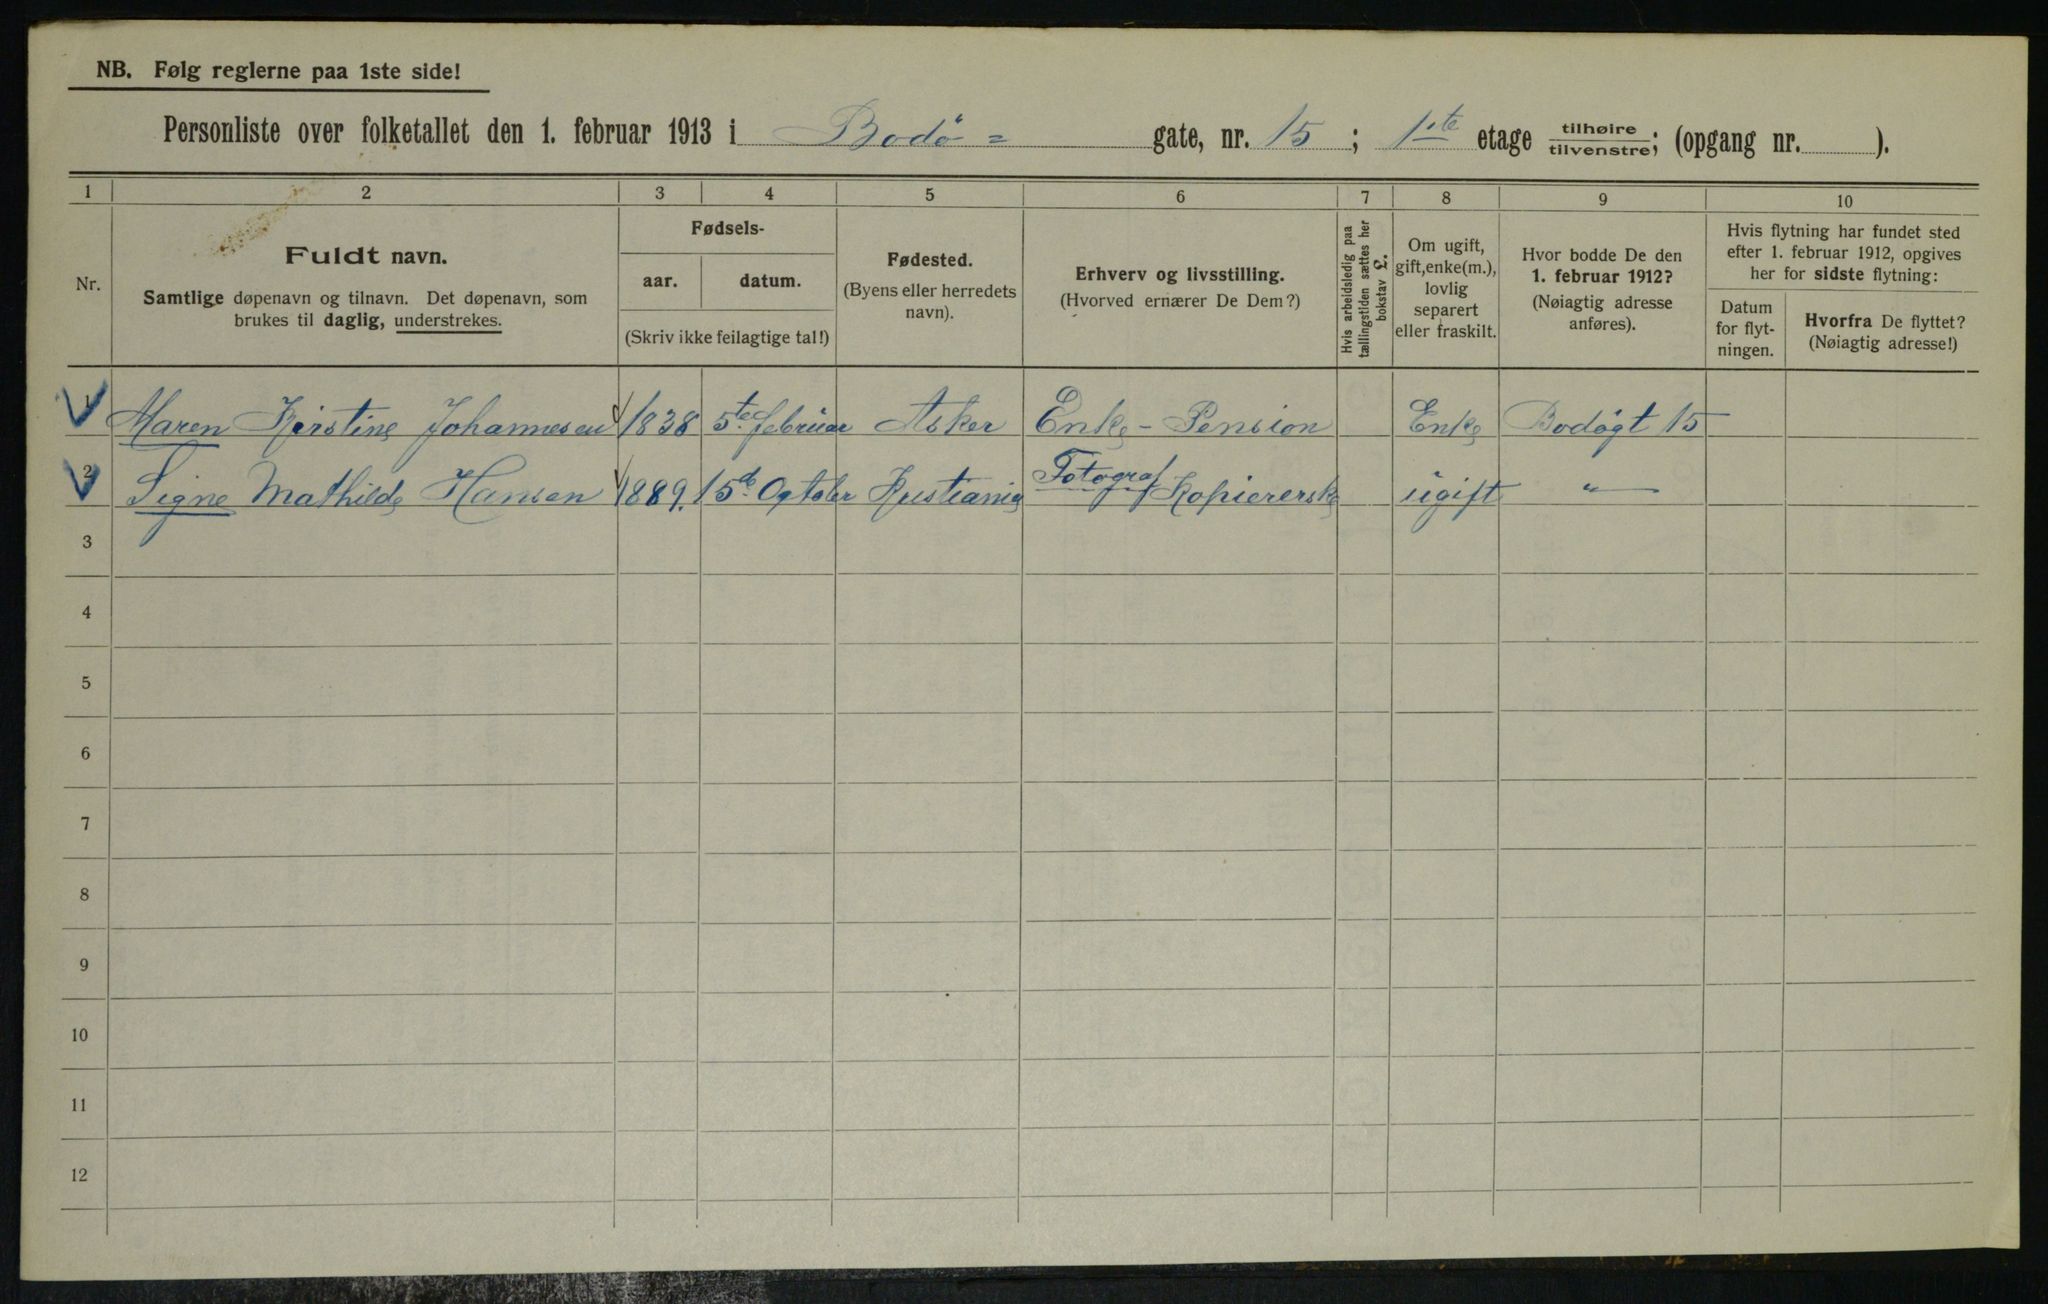 NB. Følg reglerne paa 1ste side!
Personliste over folketallet den 1. februar 1913 i Bodö = gate, nr. 15 ; 1ste etage tilhøire tilvenstre; (opgang nr. ).
1 2 3 4 5 6 7 8 9 10
Nr.
Fuldt navn.
Samtlige døpenavn og tilnavn. Det døpenavn, som
brukes til daglig, understrekes.
Fødsels-
aar. datum.
(Skriv ikke feilagtige tal!)
Fødested.
(Byens eller herredets
navn).
Erhverv og livsstilling.
(Hvorved ernærer De Dem?)
Hvis arbeidsledig paa
tællingstiden sættes her
bokstav £.
Om ugift,
gift, enke(m.),
lovlig
separert
eller fraskilt.
Hvor bodde De den
1. februar 1912?
(Nøiagtig adresse
anføres).
Hvis flytning har fundet sted
efter 1. februar 1912, opgives
her for sidste flytning:
Datum
for flyt-
ningen.
Hvorfra De flyttet?
(Nøiagtig adresse!)
1 Maren Kirstine Johannesen 1838 5te februar Asker Enke - Pension Enke Bodögt 15
2 Signe Mathilde Hansen 1889. 15de Octoler Kristiania Fotograf Kopiererske ugift "
3
4
5
6
7
8
9
10
11
12